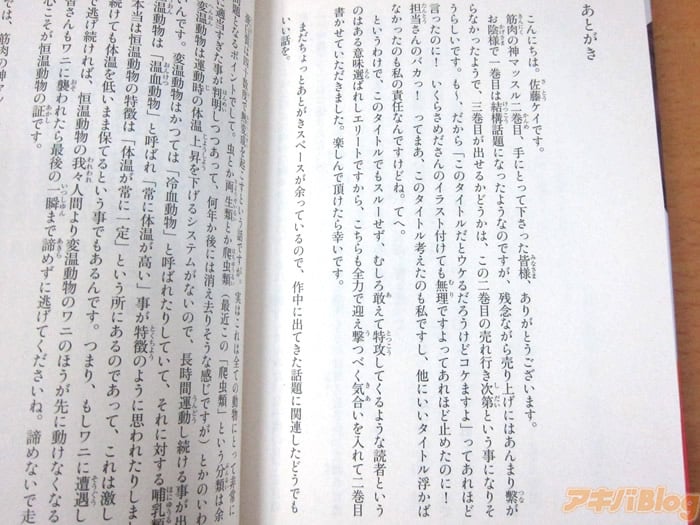 あとがき
こんにちは。佐藤ケイです。
筋肉の神マッスル二巻目、手にとって下さった皆様、ありがとうございます。
お陰様で一巻目は結構話題になったようなのですが、残念ながら売り上げにはあんまり繋が
らなかったようで、三巻目が出せるかどうかは、この二巻目の売れ行き次第という事になりそ
うらしいです。も～、だから「このタイトルだとウケるだろうけどコケますよ」ってあれほど
言ったのに！ いくらさめださんのイラスト付けても無理ですよってあれほど止めたのに！
担当さんのバカっ！ ってまあ、このタイトル考えたの私ですし、他にいいタイトル浮かば
なかったのも私の責任なんですけどね。てへ。
というわけで、このタイトルでもスルーせず、むしろ敢えて特攻してくるような読者という
のはある意味選ばれしエリートですから、こちらも全力で迎え撃つべく気合いを入れて二巻目
書かせていただきました。楽しんで頂けたら幸いです。
まだちょっとあとがきスペースが余っているので、作中に出てきた話題に関連したどうでも
いい話を。
実はこれは全ての動物にとって非常に
問題となるポイントでして。虫とか両生類とか爬虫類（最近この「爬虫類」という分類は余
りに適当すぎた事が判明しつつあって、何年か後には消え去りそうな感じですが）とかのいわ
変温動物は運動時の体温上昇を下げるシステムがないので、長時間運動し続ける事が出
いんです。変温動物はかつては「冷血動物」と呼ばれたりしていて、それに対する哺乳類
動物は「温血動物」と呼ばれ「常に体温が高い」事が特徴のように思われたりしま
本当は恒温動物の特徴は「体温が常に一定」という所にあるのであって、これは激し
続けても体温を低いまま保てるという事でもあるんです。つまり、もしワニに遭遇し
て逃げ続ければ、恒温動物の我々人間より変温動物のワニのほうが先に動けなくなる
皆さんもワニに襲われたら最後の一瞬まで諦めずに逃げてくださいね。諦めないで走
心こそが恒温動物の証です。
筋肉の神マッ
アキバBlog